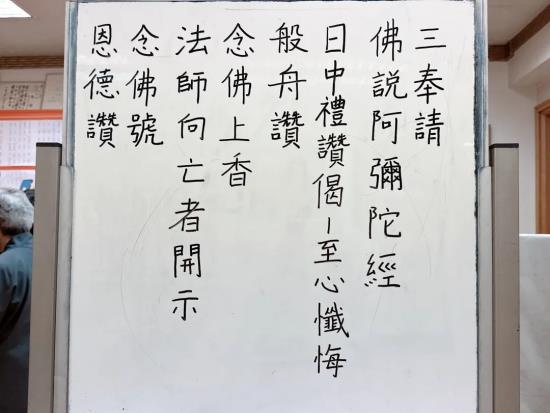 三奉請
佛説阿彌陀經
日中禮讚偈-至心懺悔
般舟讚
念佛上香
法師向亡者開示
念佛號
恩德讚